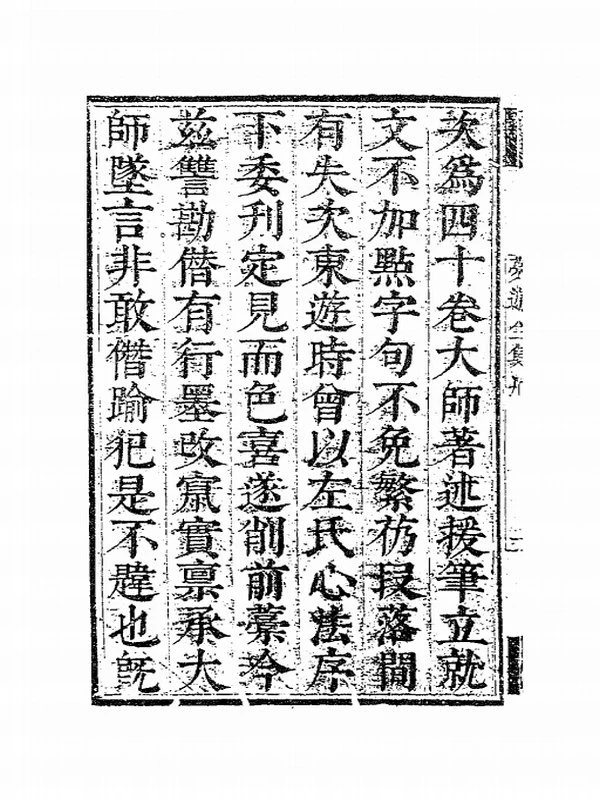 次爲四十卷大師著述援筆立就
文不加點字句不免繁仍段落間
有失次東遊時曾以左氏心法序
下委刊定見而色喜遂削前藁今
茲讐勘僭有行墨改竄實稟承大
師墜言非敢僭踰犯是不韙也旣
夢遊全集